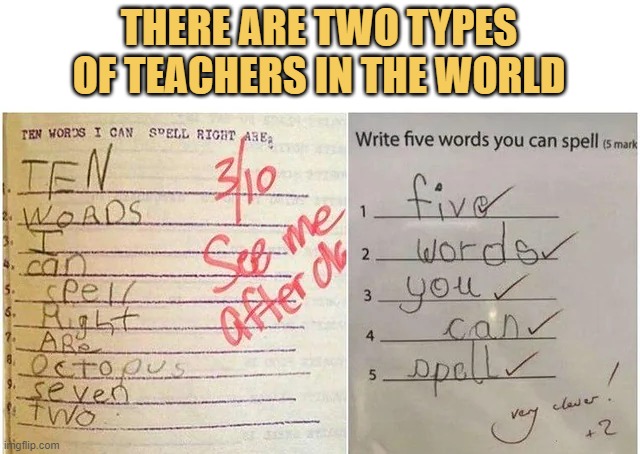 THERE ARE TWO TYPES
OF TEACHERS IN THE WORLD
TEN WORDS I CAN SPELL RIGHT ARE:
1. TEN
2. WORDS
3. I
4. can
5. spell
6. Right
7. ARe
8. Octopus
9. seven
two
3/10
See me
after
Write five words you can spell (5 mark
1 five
2 words
3 you
4 can
5 spell
very clever!
+2
imgflip.com